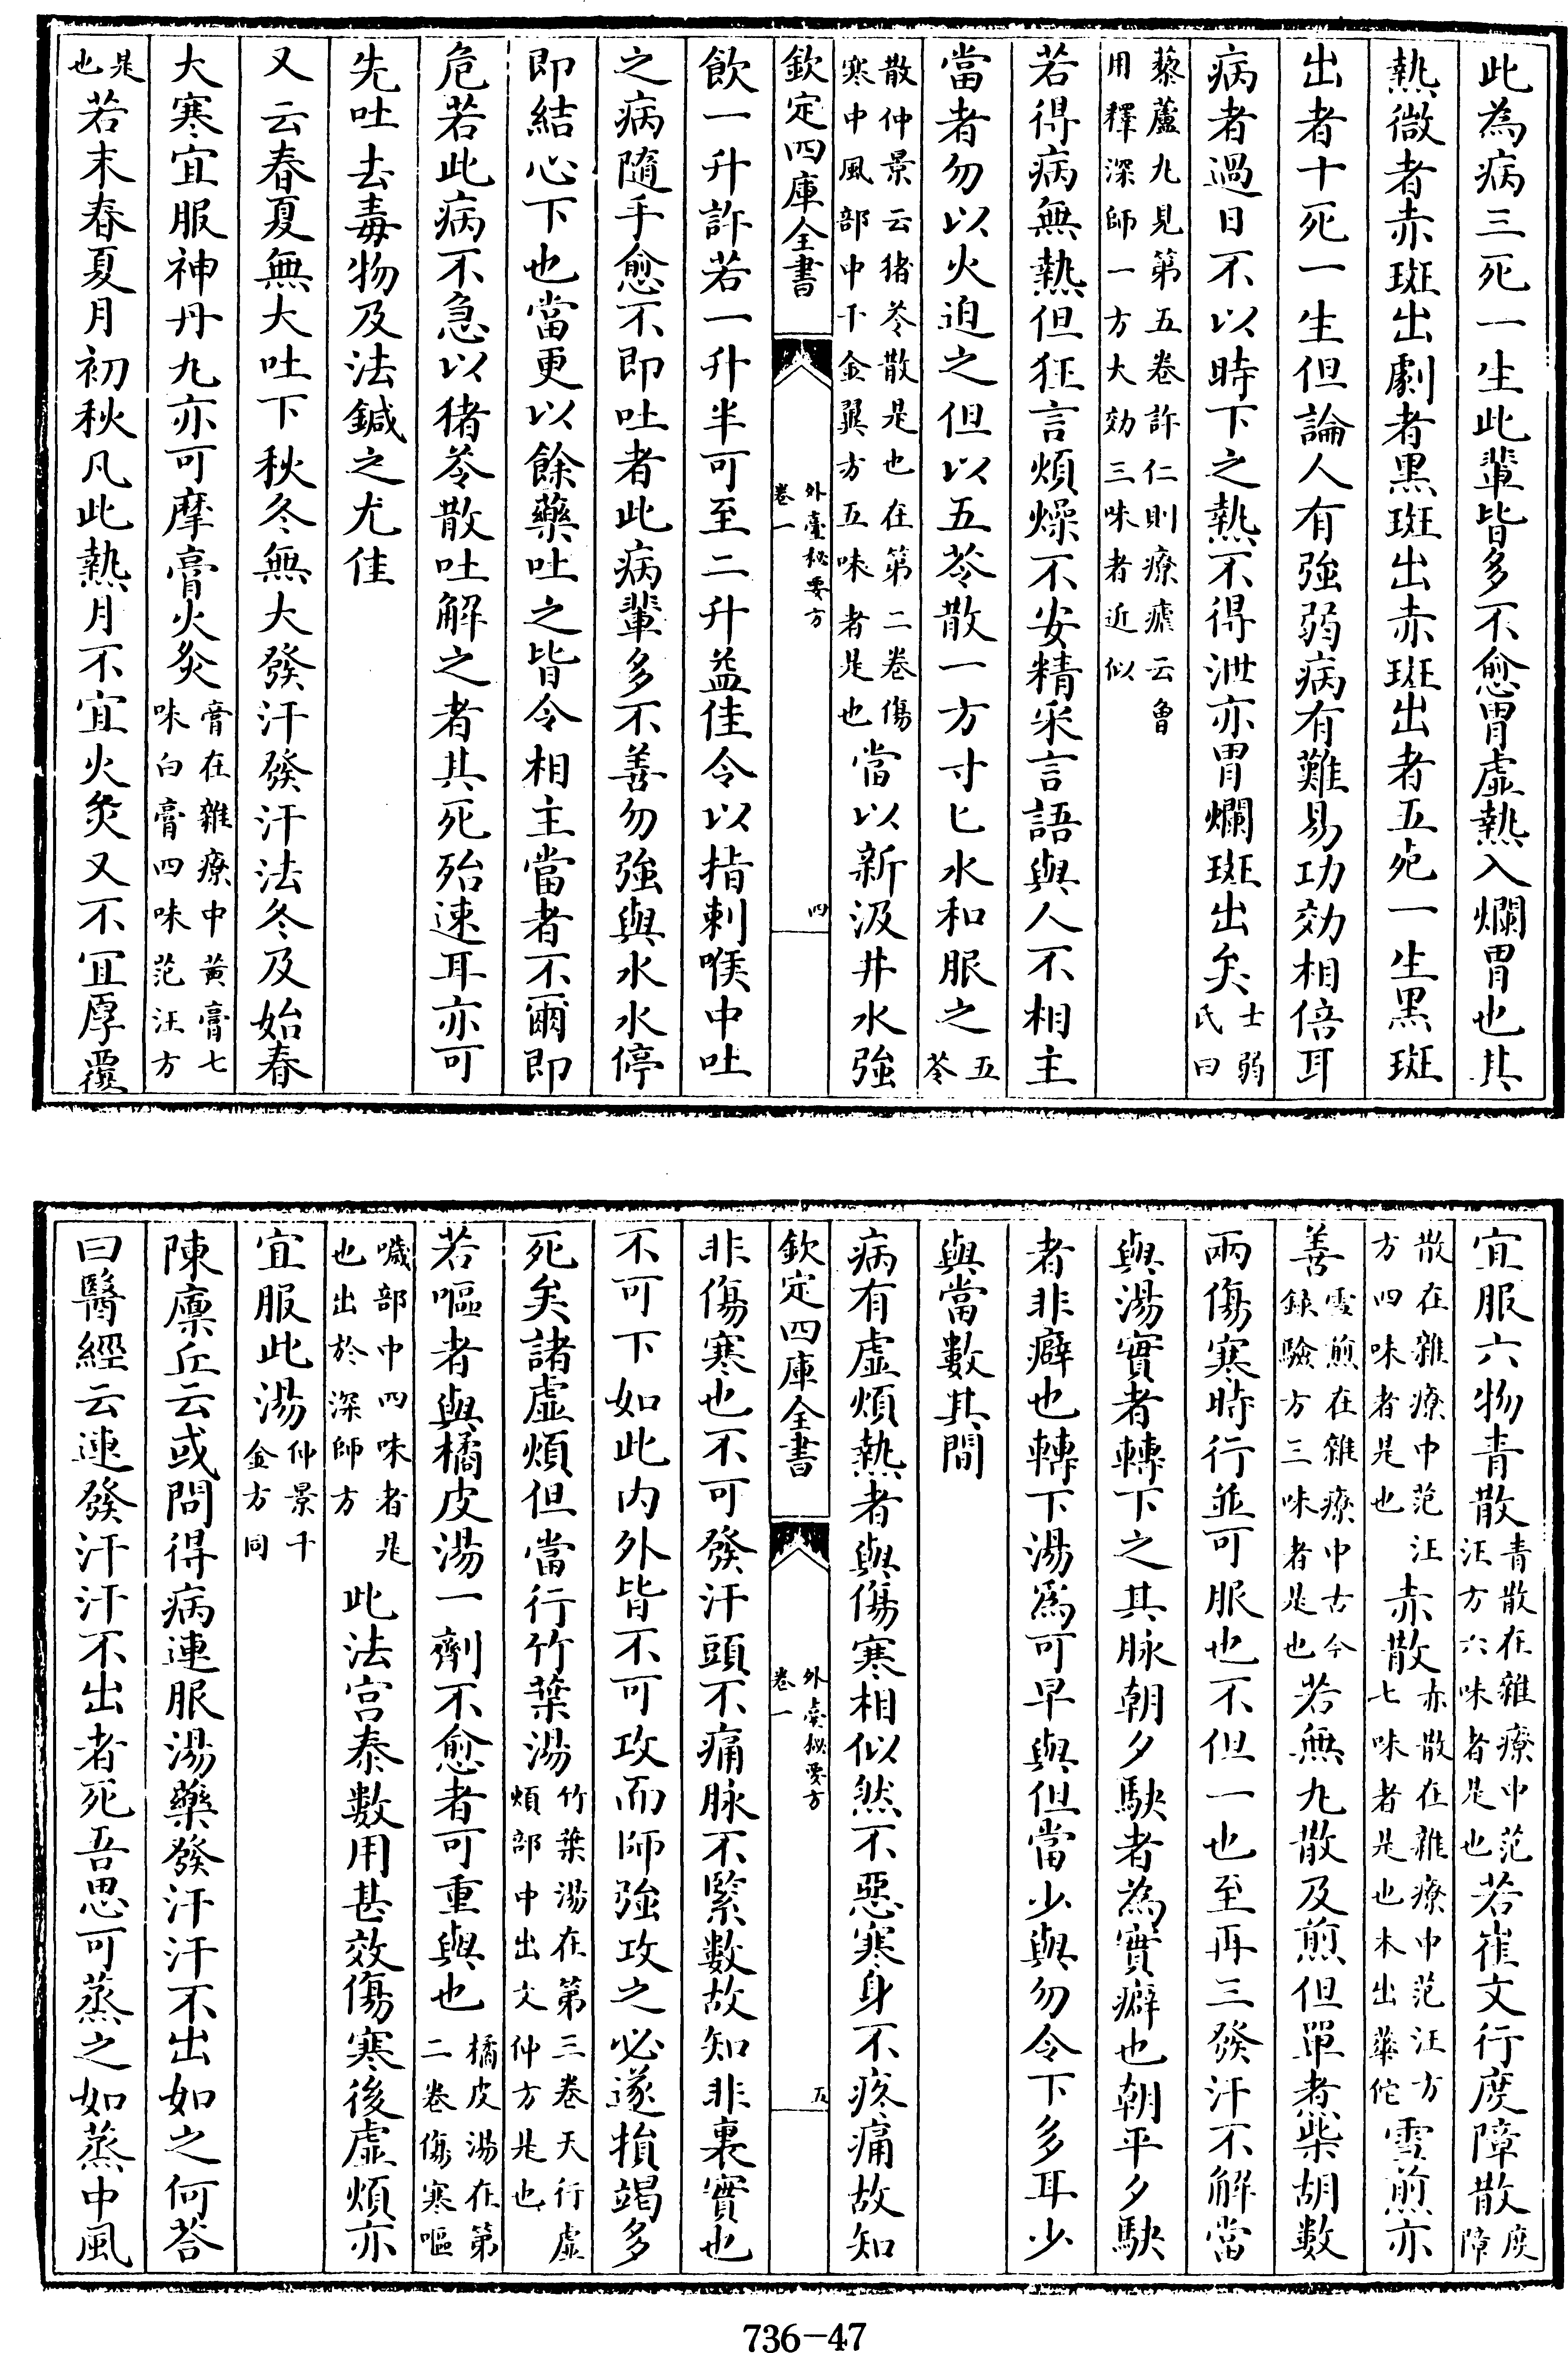 此為病三死一生此輩皆多不愈胃虛熱入爛胃也其
熱微者赤斑出劇者黑斑出赤斑出者五死一生黑斑
出者十死一生但論人有強弱病有難易功効相倍耳
病者過日不以時下之熱不得泄亦胃爛斑出矣士弱氏曰
藜蘆丸見第五卷許仁則療瘧云魯用釋深師一方大効三味者近似
若得病無熱但狂言煩燥不安精采言語與人不相主
當者勿以火迫之但以五苓散一方寸匕水和服之五苓
散仲景云猪苓散是也在第二卷傷寒中風部中千金翼方五味者是也當以新汲井水強
欽定四庫全書 外臺秘要方 卷一 四
飲一升許若一升半可至二升益佳令以指刺喉中吐
之病隨手愈不即吐者此病輩多不善勿強與水水停
即結心下也當更以餘藥吐之皆令相主當者不爾即
危若此病不急以猪苓散吐解之者其死殆速耳亦可
先吐去毒物及法鍼之尤佳
又云春夏無大吐下秋冬無大發汗發汗法冬及始春
大寒宜服神丹丸亦可摩膏火炙膏在雜療中黄膏七味白膏四味范汪方
是也若末春夏月初秋凡此熱月不宜火炙又不宜厚覆
宜服六物青散青散在雜療中范汪方六味者是也若崔文行度障散度障
散在雜療中范汪方四味者是也赤散赤散在雜療中范汪方七味者是也本出華佗雪煎亦
善雪煎在雜療中古今錄驗方三味者是也若無丸散及煎但單煮柴胡數
兩傷寒時行並可服也不但一也至再三發汗不解當
與湯實者轉下之其脉朝夕駃者為實癖也朝平夕駃
者非癖也轉下湯爲可早與但當少與勿令下多耳少
與當數其間
病有虛煩熱者與傷寒相似然不惡寒身不疼痛故知
欽定四庫全書 外臺秘要方 卷一 五
非傷寒也不可發汗頭不痛脉不緊數故知非裏實也
不可下如此内外皆不可攻而師強攻之必遂損竭多
死矣諸虛煩但當行竹葉湯竹葉湯在第三卷天行虛煩部中出文仲方是也
若嘔者與橘皮湯一劑不愈者可重與也橘皮湯在第二卷傷寒嘔
噦部中四味者是也出於深師方此法宮泰數用甚效傷寒後虛煩亦
宜服此湯仲景千金方同
陳廪丘云或問得病連服湯藥發汗汗不出如之何荅
曰醫經云連發汗汗不出者死吾思可蒸之如蒸中風
736-47